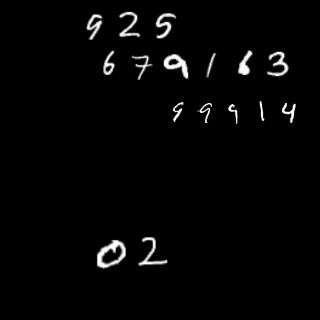 925
679163
99914
02